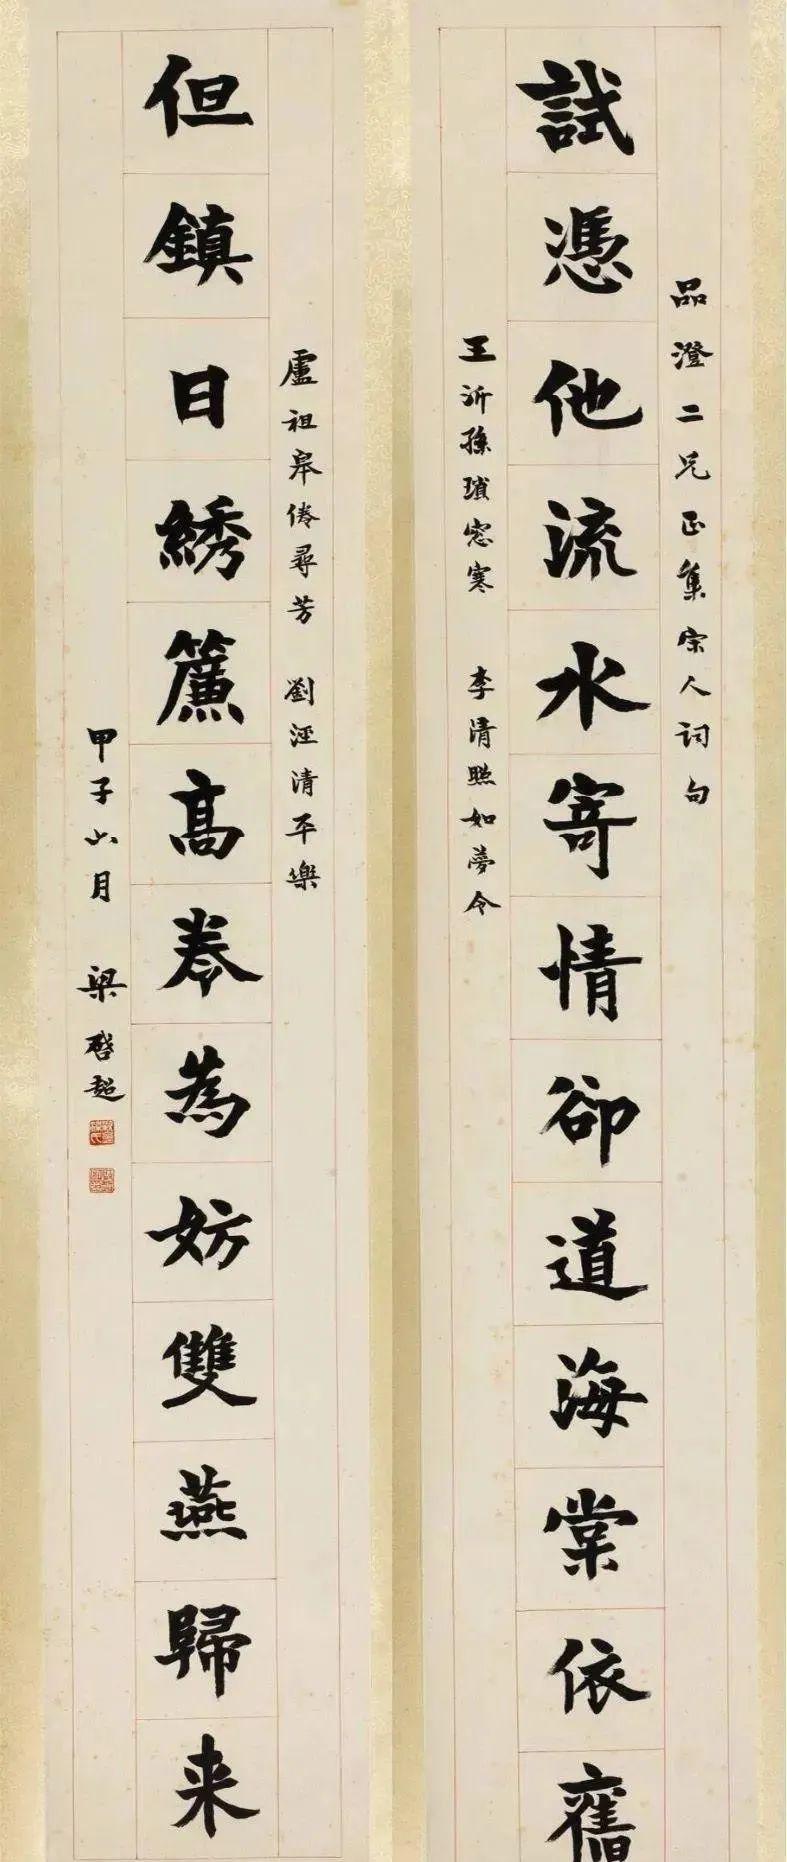 品澄二兄正集宋人詞句
試憑他流水寄情卻道海棠依舊
王沂孫瑣窓寒 李清照如夢令
盧祖皋倦尋芳 劉涇清平樂
但鎮日綉簾高卷為妨雙燕歸来
甲子六月 梁啓超